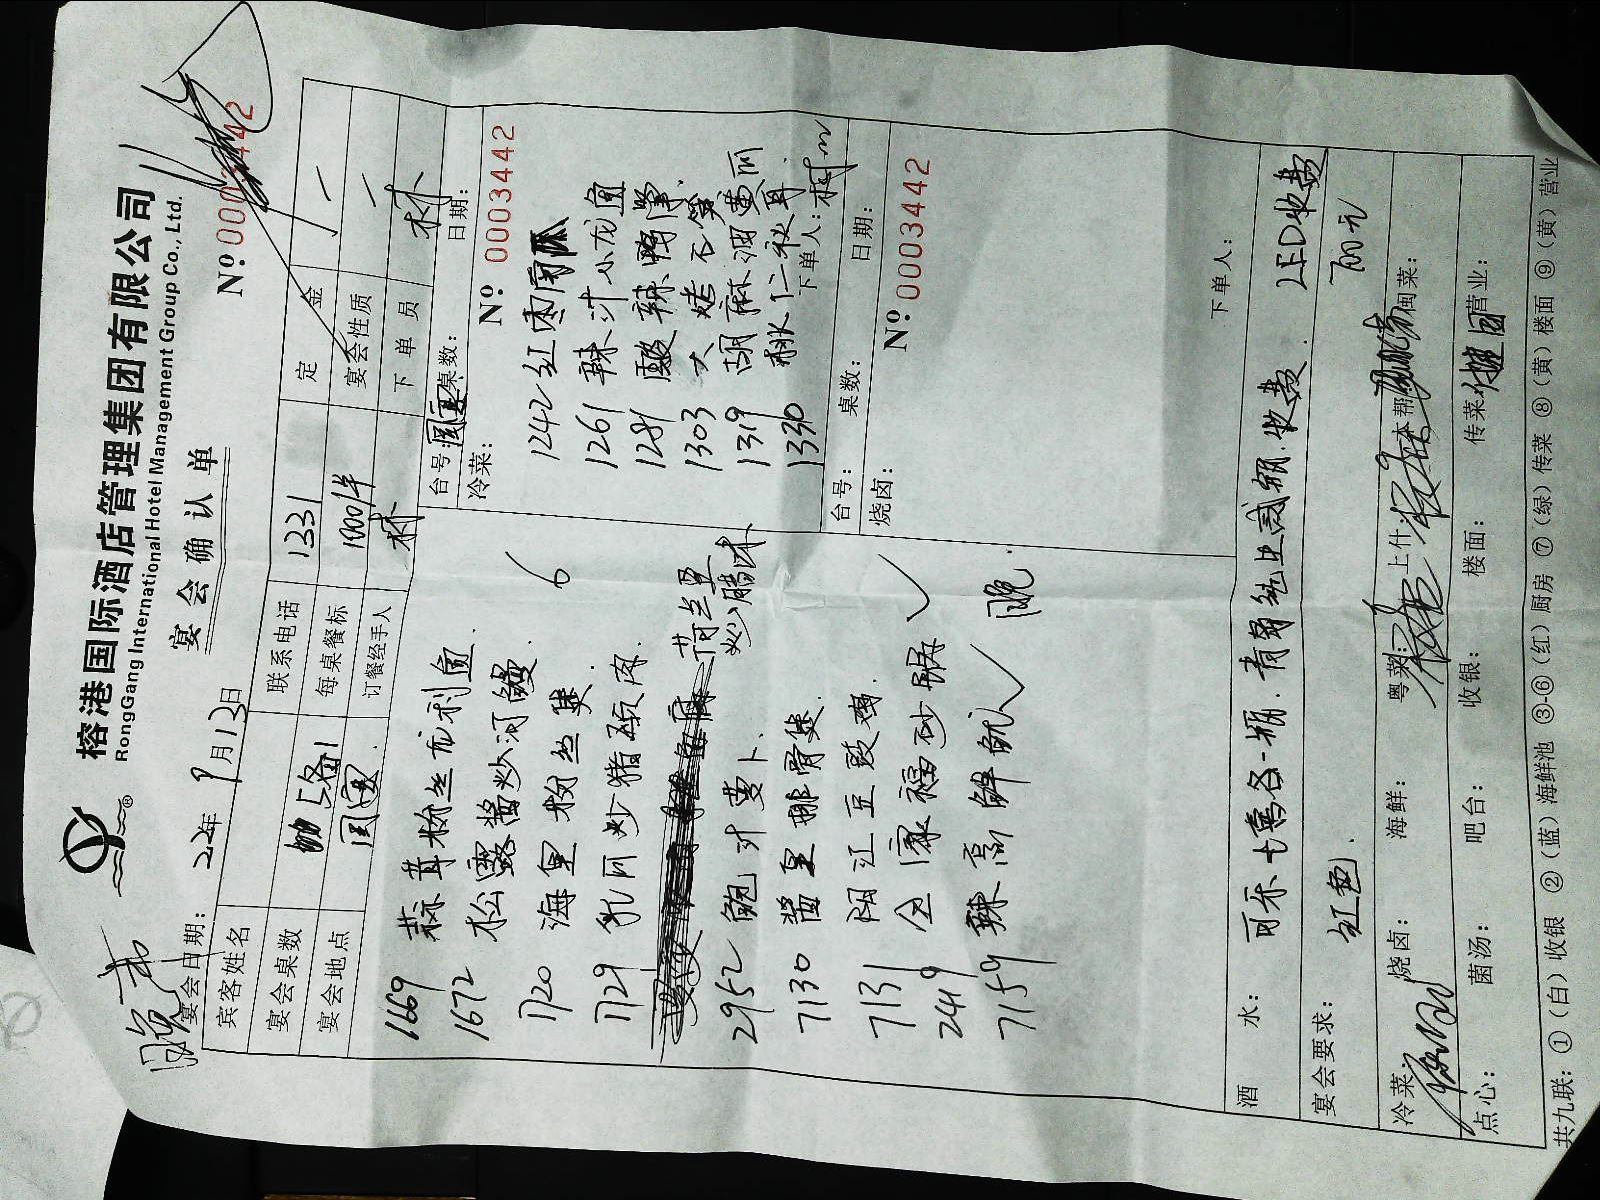 榕港国际酒店管理集团有限公司
RongGang International Hotel Management Group Co., Ltd.
宴会确认单
晚市
№:0003442
宴会日期: 22年9月13日
宾客姓名 联系电话 1331 定金
宴会桌数 每桌餐标 1800/半 宴会性质
宴会地点 国宴 订餐经手人 林 下单员 林
1669 蒜茸粉丝龙利鱼
1672 松露酱炒河鳗
1720 海皇粉丝煲
1729 炒猪颈肉
荷兰豆炒腊味
2952 鲍汁萝卜
7130 酱皇排骨煲
7131 阳江豆豉鸡
2419 全家福
7159
晚
台号: 国宴 桌数: 日期:
冷菜: №:0003442
1242 红枣南瓜
1261 辣汁小龙鱼
1281 酸辣鸭掌
1303 大烤冬笋
1319 胡麻油黄瓜
1330 桃仁秋耳
下单人: 林
台号: 桌数: 日期:
烧卤: №:0003442
下单人:
酒水: 可乐七喜各一瓶. 收费. LED收费
700元
宴会要求: 红色.
冷菜: 烧卤: 海鲜: 粤菜: 上什: 本帮: 闽菜:
点心: 菌汤: 吧台: 收银: 楼面: 传菜: 营业:
共九联: ①(白)收银 ②(蓝)海鲜池 ③-⑥(红)厨房 ⑦(绿)传菜 ⑧(黄)楼面 ⑨(黄)营业